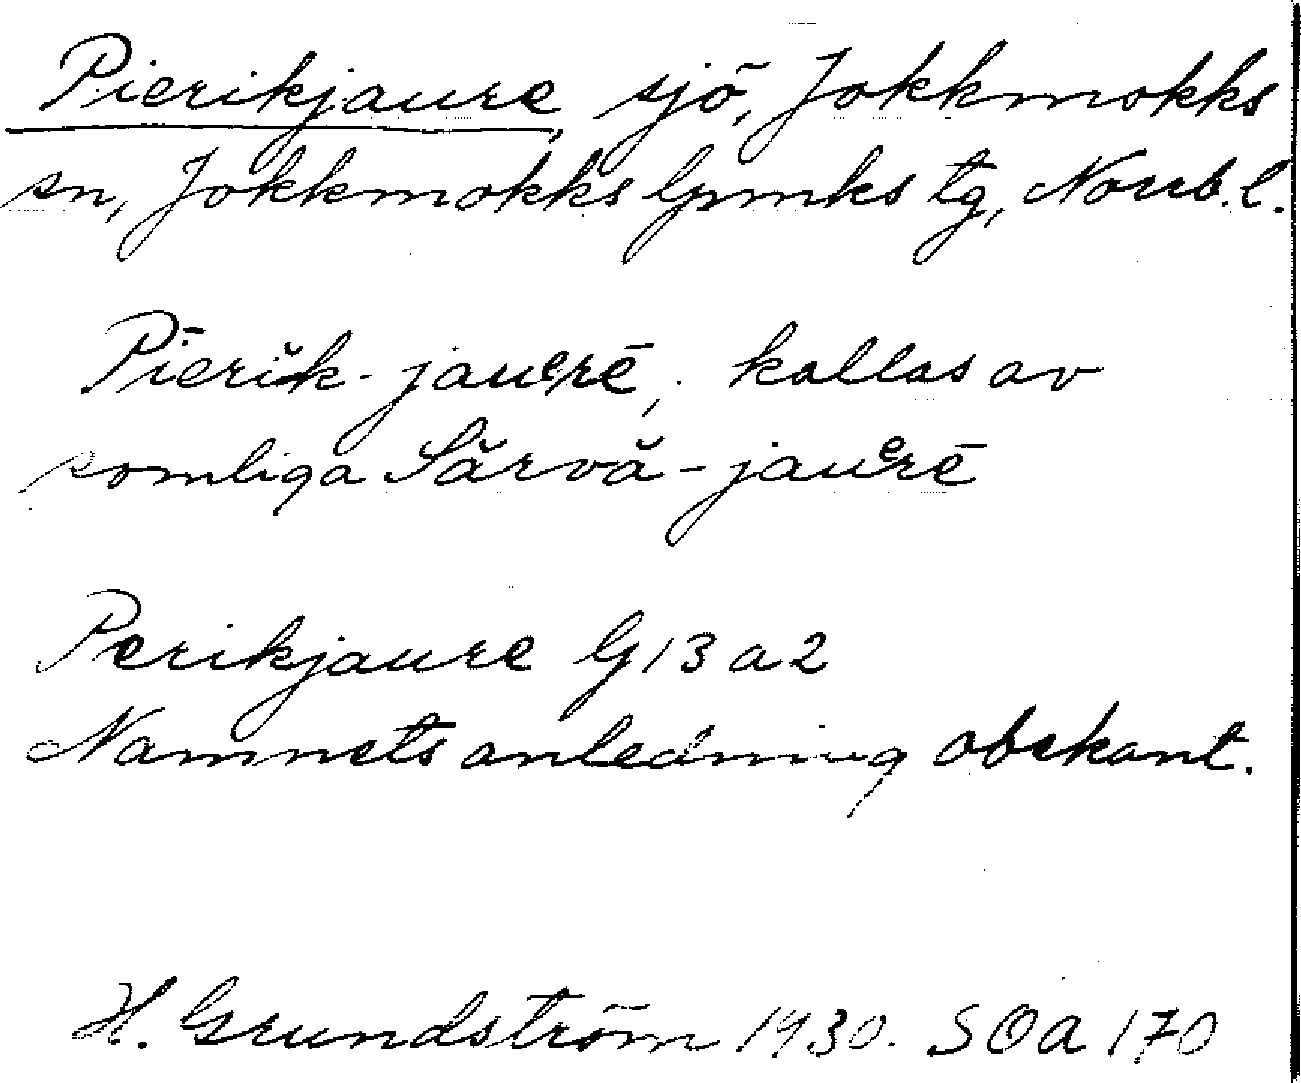 Pierikjaure, sjö, Jokkmokks
sn, Jokkmokks lpmks tg, Norrb. l.
Pīerĭk-jauᵉrē, kallas av
somliga Sărvă-jauᵉrē
Perikjaure G13a2
Namnets anledning obekant.
H. Grundström 1930. SOA 170